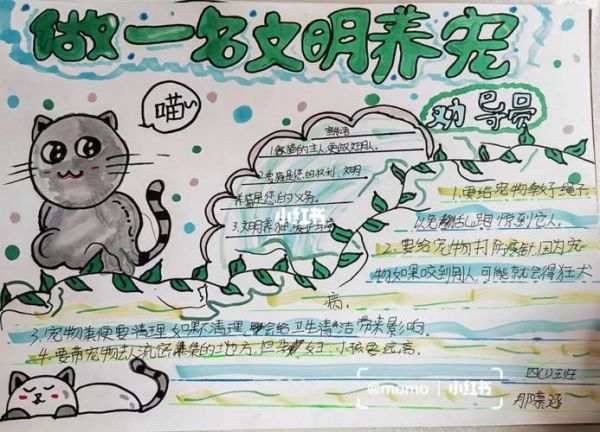 做一名文明养宠
劝导员
喵
宣传语
1.做猫的主人,更做文明人.
2.养猫是您的权利,文明
养猫是您的义务.
3.文明养
小红书
1.要给宠物教子绳子,
以免惊到它人.
2.要给宠物打防疫针,因为宠
物如果咬到别人,可能就会得狂犬
病.
3.宠物粪便要清理,如果不清理,会给卫生清洁带来影响.
4.要带宠物去人流密集的地方,小孩要远离.
@momo | 小红书
四(1)班